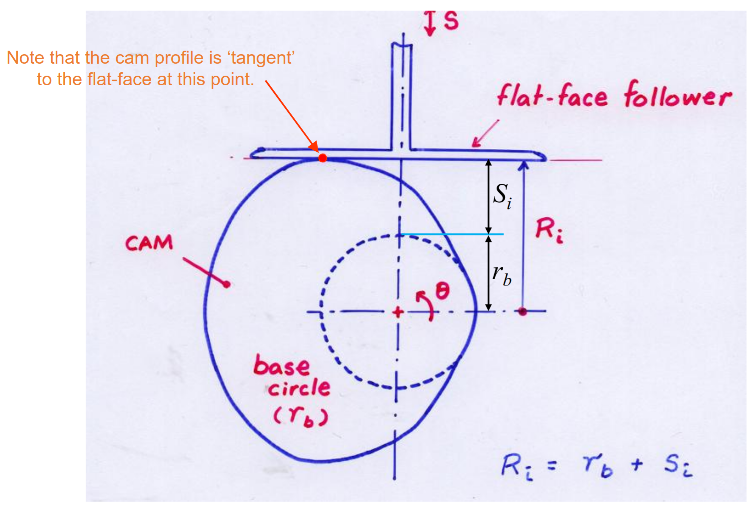 S
Note that the cam profile is ‘tangent’
to the flat-face at this point.
flat-face follower
S_i
R_i
CAM
r_b
θ
base
circle
(r_b)
R_i = r_b + S_i